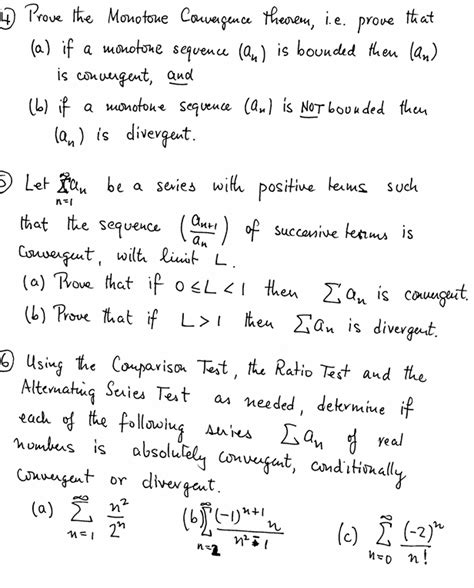 4) Prove the Monotone Convergence theorem, i.e. prove that
(a) if a monotone sequence (aₙ) is bounded then (aₙ)
is convergent, and
(b) if a monotone sequence (aₙ) is NOT bounded then
(aₙ) is divergent.
5) Let ∑_{n=1}^{∞} aₙ be a series with positive terms such
that the sequence (aₙ₊₁/aₙ) of successive terms is
convergent, with limit L.
(a) Prove that if 0 ≤ L < 1 then ∑ aₙ is convergent.
(b) Prove that if L > 1 then ∑ aₙ is divergent.
6) Using the Comparison Test, the Ratio Test and the
Alternating Series Test as needed, determine if
each of the following series ∑ aₙ of real
numbers is absolutely convergent, conditionally
convergent or divergent.
(a) ∑_{n=1}^{∞} n²/2ⁿ (b) ∑_{n=2}^{∞} (-1)ⁿ⁺¹ n / (n² - 1) (c) ∑_{n=0}^{∞} (-2)ⁿ/n!